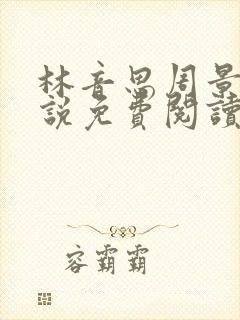 林音思周景
說免費閱讀
容霸霸